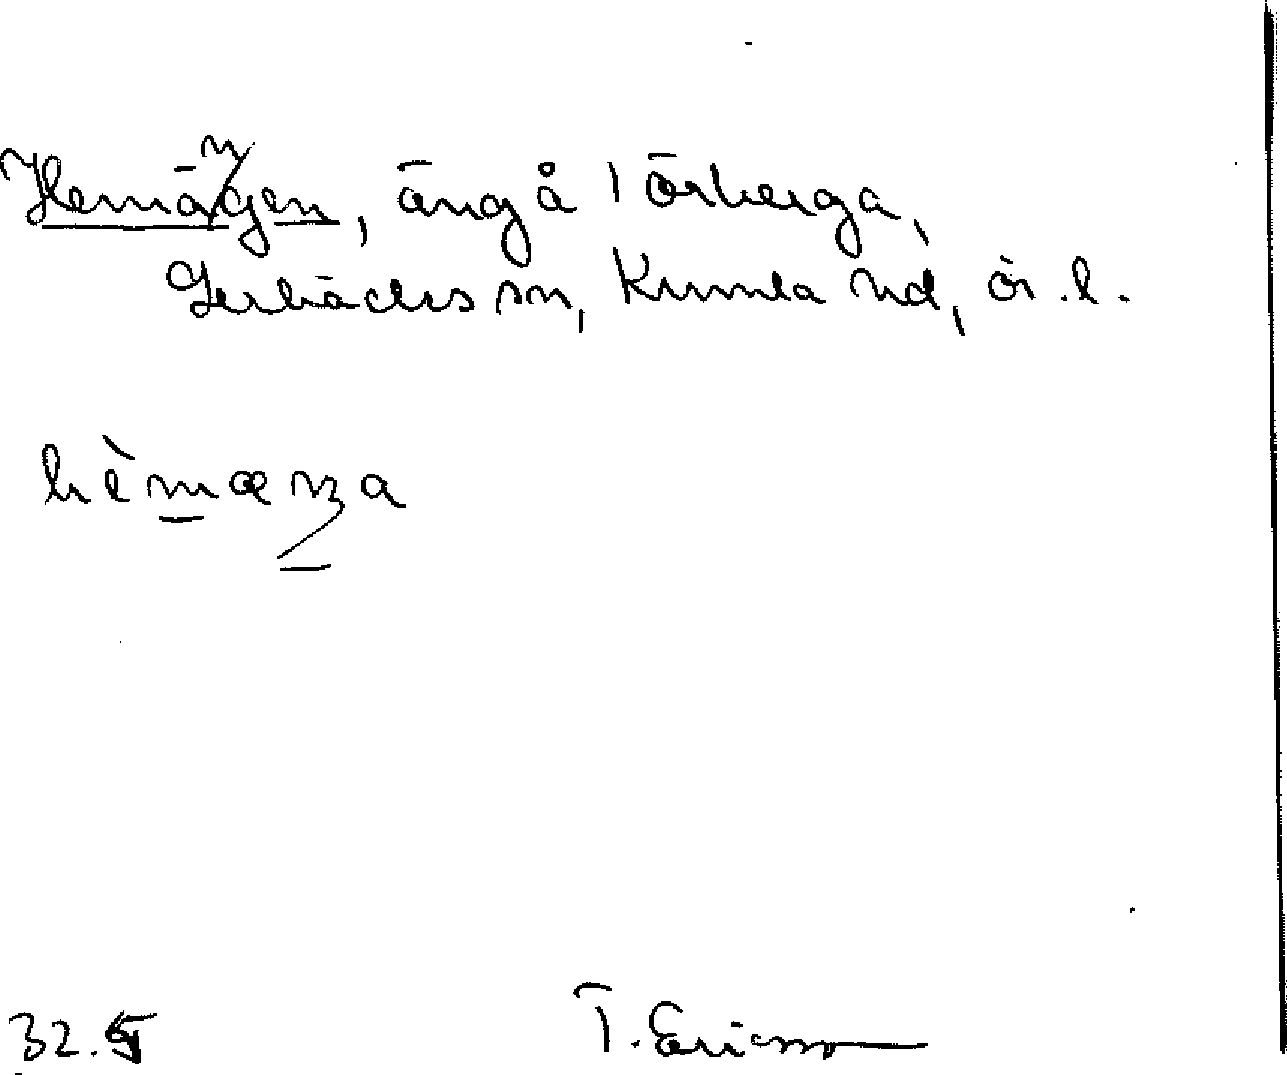 Hemängen, äng å Törberga,
Gerbäcks sn, Kumla hd, ör. l.
hèmæŋa
32.5
T. Ericsson